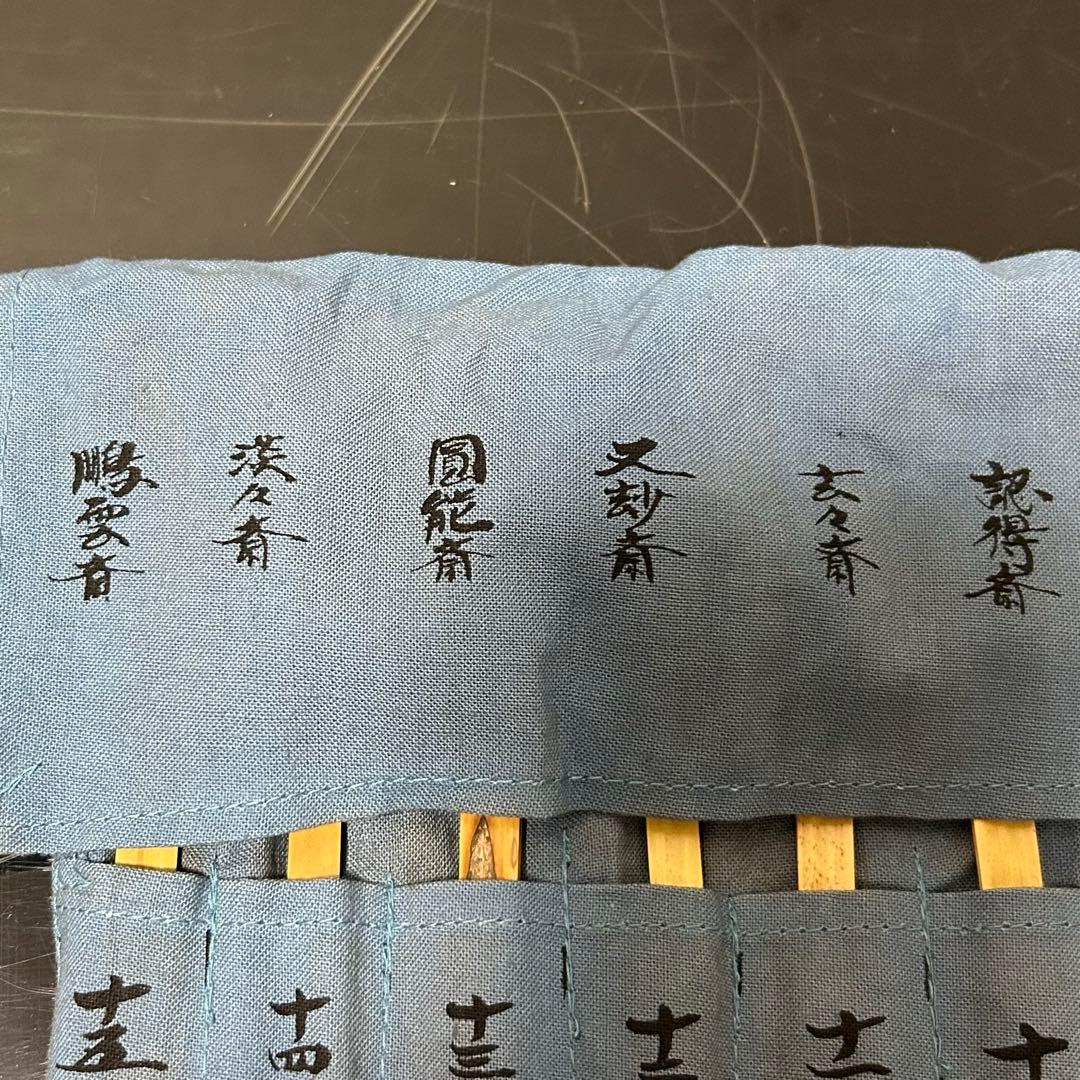 認得斎
玄々斎
又玅斎
圓能斎
淡々斎
鵬雲斎
十
十一
十二
十三
十四
十五